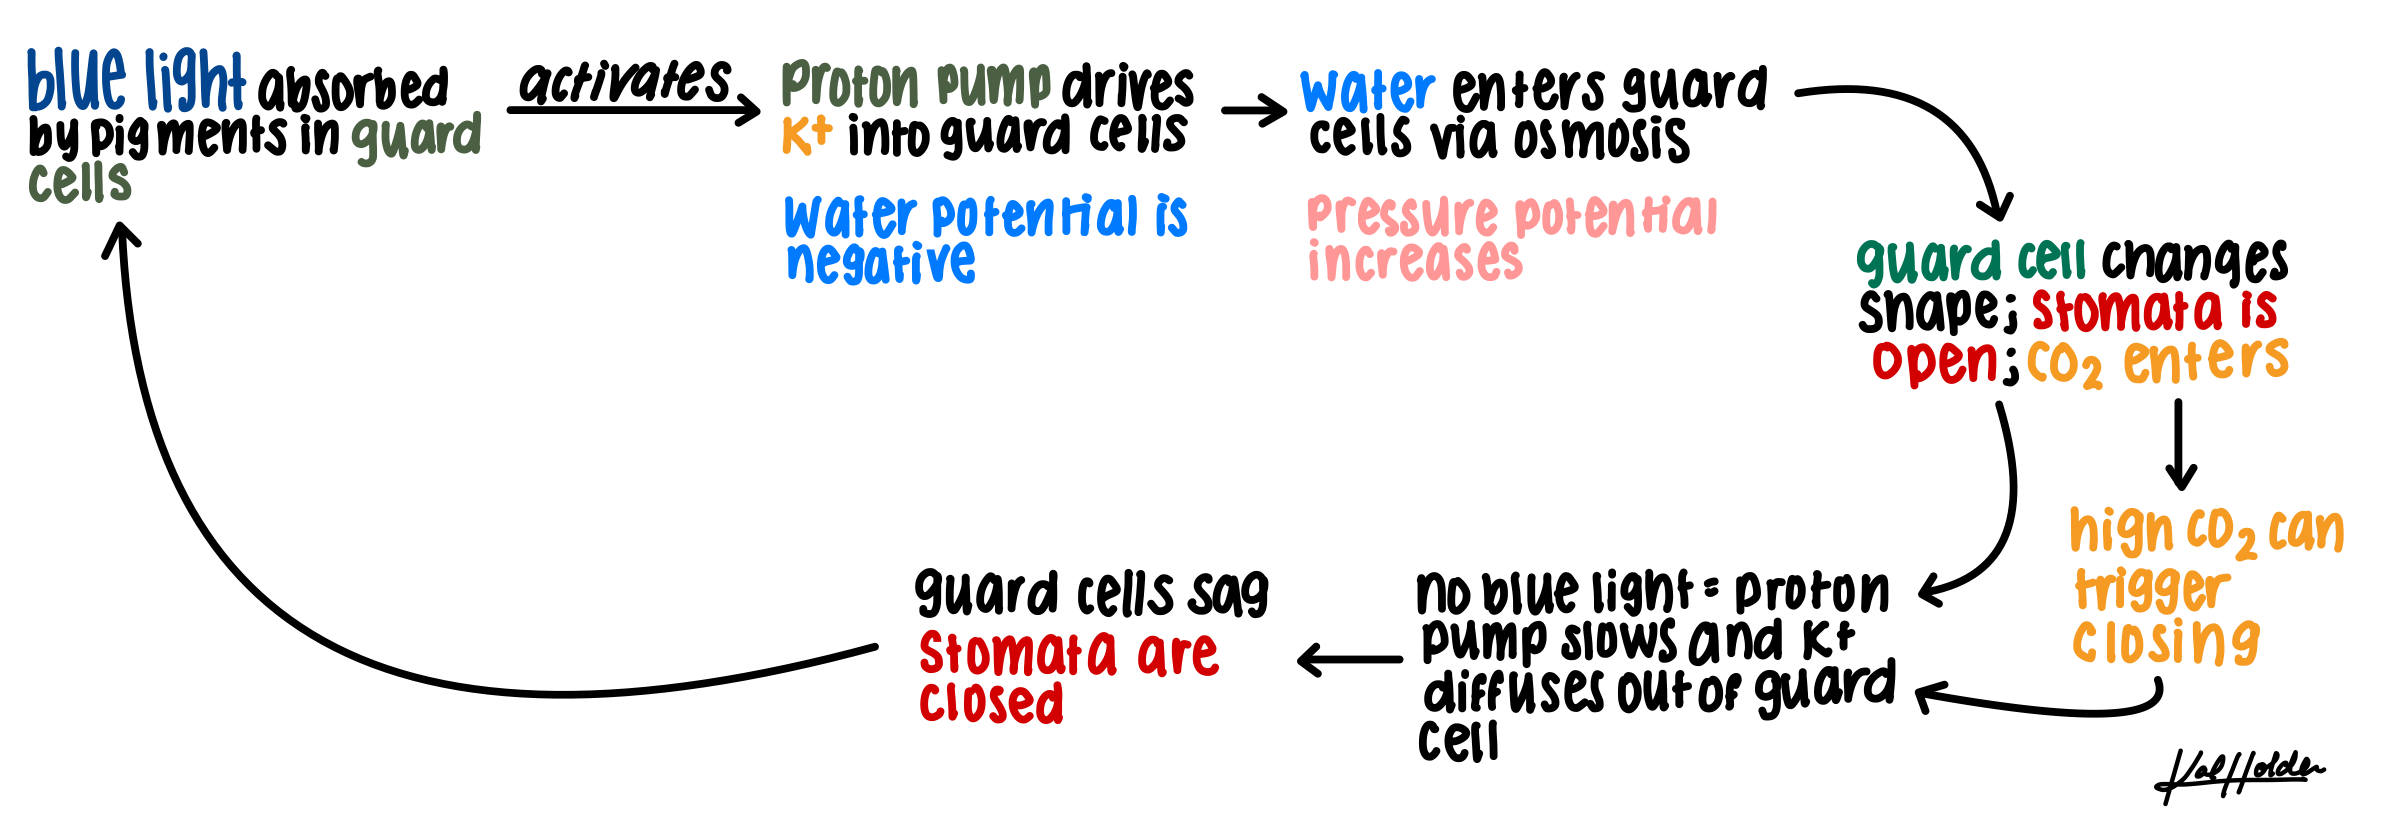 blue light absorbed
by pigments in guard
cells
activates
Proton pump drives
K+ into guard cells
Water potential is
negative
Water enters guard
cells via osmosis
Pressure potential
increases
guard cell changes
shape; stomata is
open; CO₂ enters
high CO₂ can
trigger
closing
no blue light = proton
pump slows and K+
diffuses out of guard
cell
guard cells sag
stomata are
closed
Kal Holden